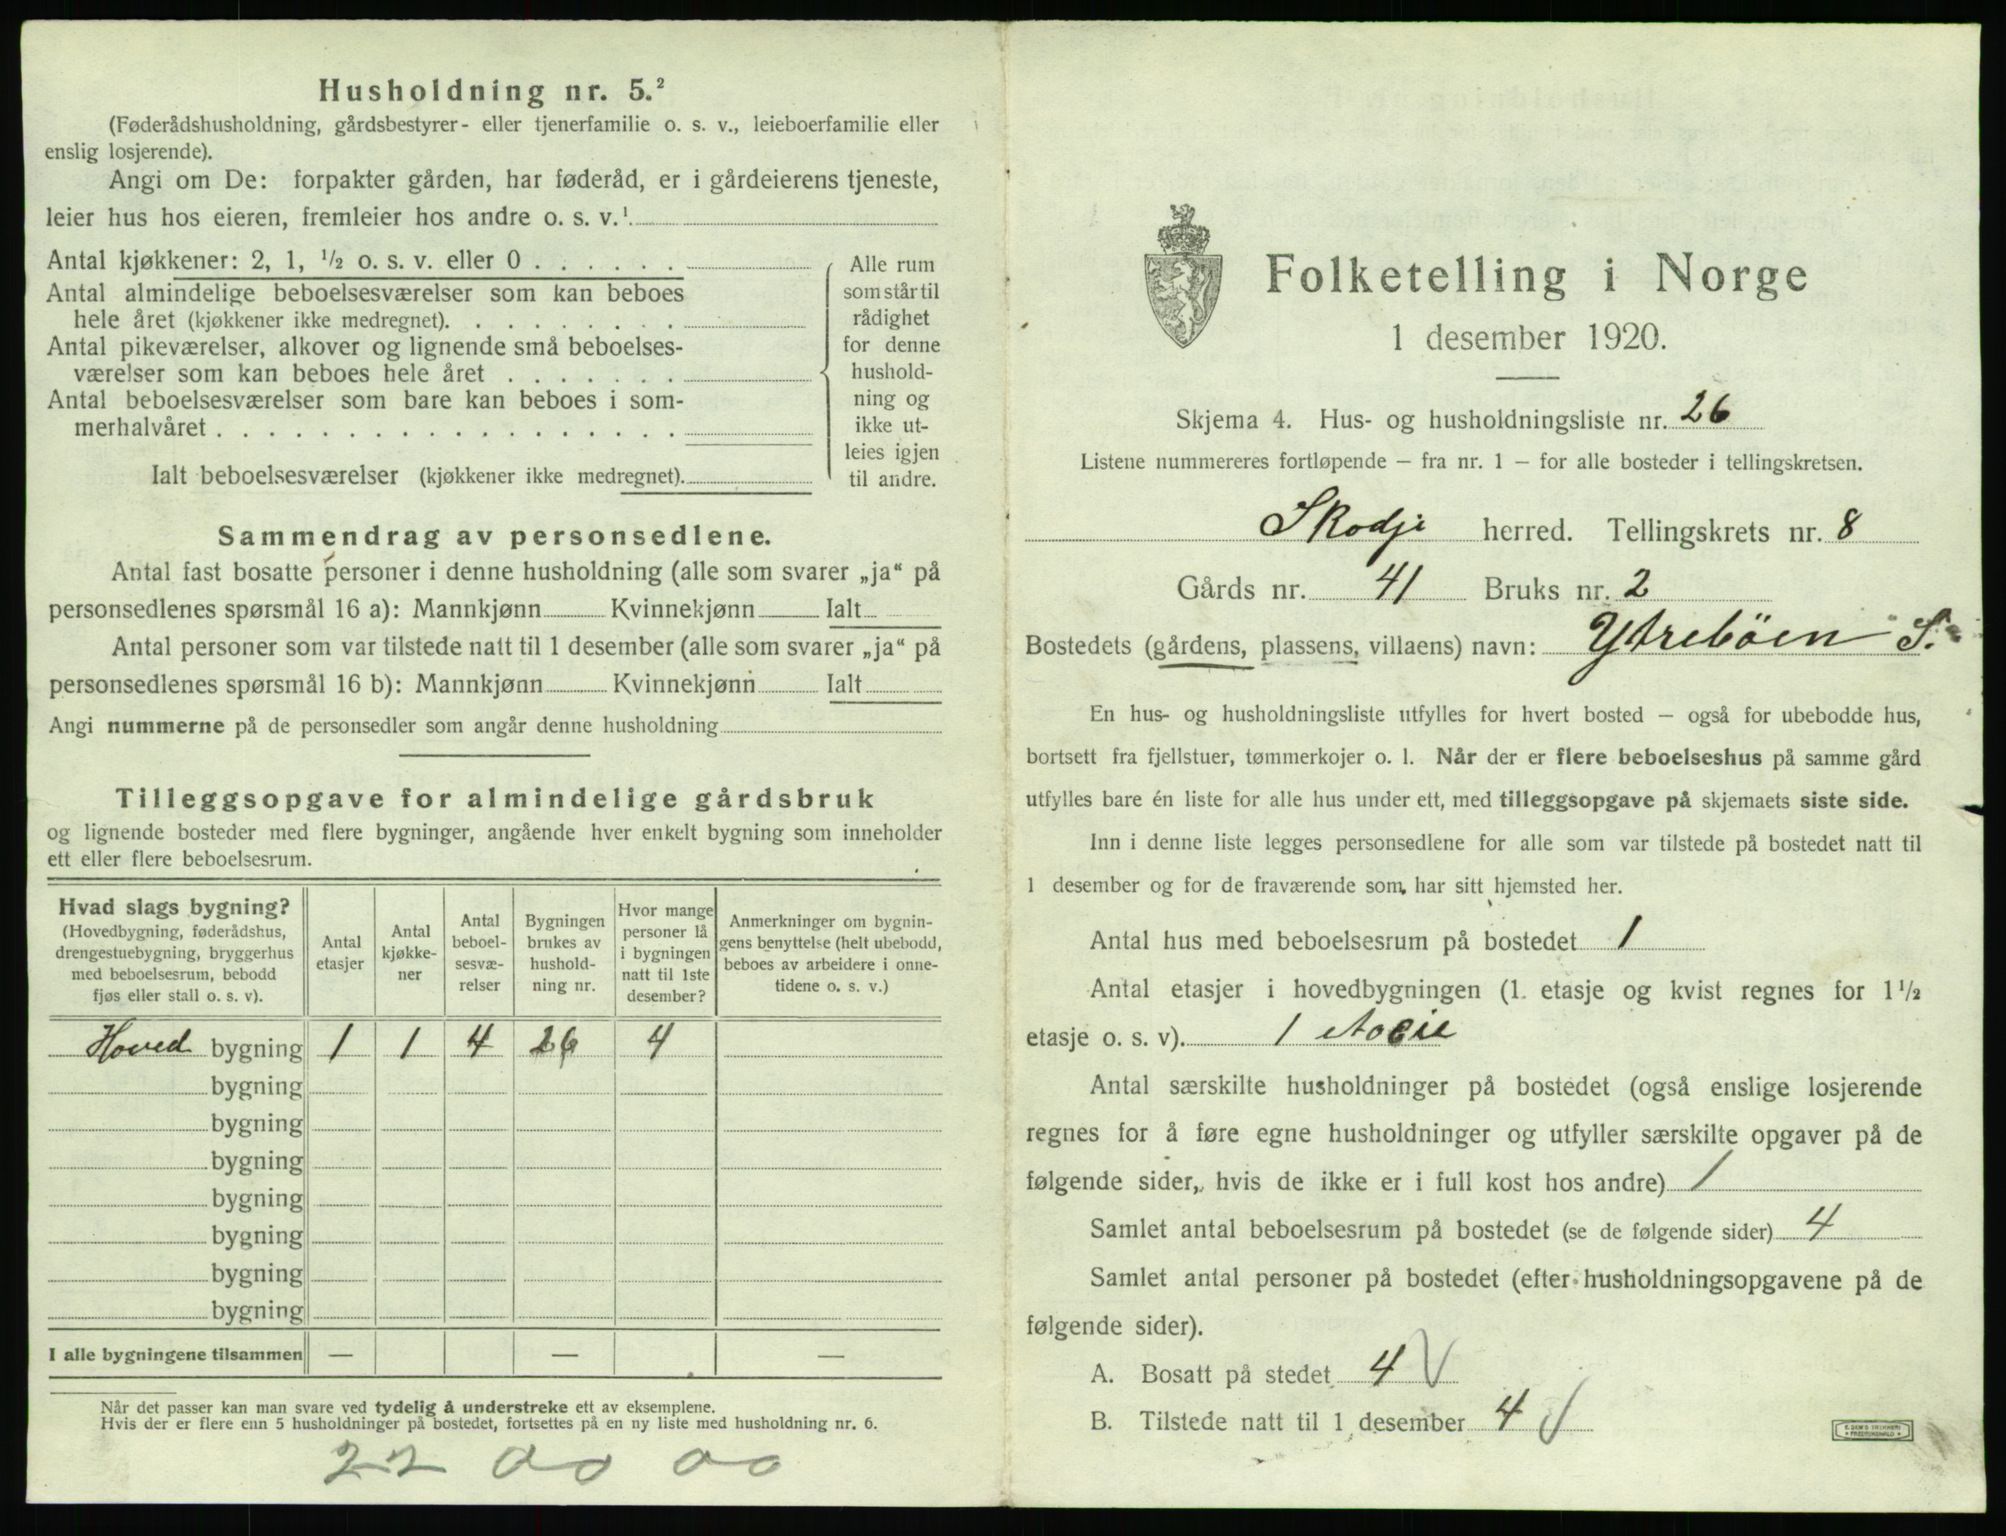 Husholdning nr. 5.²
(Føderådshusholdning, gårdsbestyrer- eller tjenerfamilie o. s. v., leieboerfamilie eller
enslig losjerende).
Angi om De: forpakter gården, har føderåd, er i gårdeierens tjeneste,
leier hus hos eieren, fremleier hos andre o. s. v.¹
Antal kjøkkener: 2, 1, ½ o. s. v. eller 0 . . . . . .
Antal almindelige beboelsesværelser som kan beboes
hele året (kjøkkener ikke medregnet). . . . . . . . .
Antal pikeværelser, alkover og lignende små beboelses-
værelser som kan beboes hele året . . . . . . .
Antal beboelsesværelser som bare kan beboes i som-
merhalvåret . . . . . . . . . . . . . . . . . .
Ialt beboelsesværelser (kjøkkener ikke medregnet).
Alle rum
som står til
rådighet
for denne
hushold-
ning og
ikke ut-
leies igjen
til andre.
Sammendrag av personsedlene.
Antal fast bosatte personer i denne husholdning (alle som svarer „ja“ på
personsedlenes spørsmål 16 a): Mannkjønn Kvinnekjønn Ialt
Antal personer som var tilstede natt til 1 desember (alle som svarer „ja“ på
personsedlenes spørsmål 16 b): Mannkjønn Kvinnekjønn Ialt
Angi nummerne på de personsedler som angår denne husholdning
Tilleggsopgave for almindelige gårdsbruk
og lignende bosteder med flere bygninger, angående hver enkelt bygning som inneholder
ett eller flere beboelsesrum.
Hvad slags bygning?
(Hovedbygning, føderådshus,
drengestuebygning, bryggerhus
med beboelsesrum, bebodd
fjøs eller stall o. s. v).
Antal
etasjer
Antal
kjøkke-
ner
Antal
beboel-
sesvæ-
relser
Bygningen
brukes av
hushold-
ning nr.
Hvor mange
personer lå
i bygningen
natt til 1ste
desember?
Anmerkninger om bygnin-
gens benyttelse (helt ubebodd,
beboes av arbeidere i onne-
tidene o. s. v.)
Hoved bygning 1 1 4 26 4
bygning
bygning
bygning
bygning
bygning
bygning
bygning
I alle bygningene tilsammen — — —
Når det passer kan man svare ved tydelig å understreke ett av eksemplene.
Hvis der er flere enn 5 husholdninger på bostedet, fortsettes på en ny liste med husholdning nr. 6.
22 00 00
Folketelling i Norge
1 desember 1920.
Skjema 4. Hus- og husholdningsliste nr. 26
Listene nummereres fortløpende — fra nr. 1 — for alle bosteder i tellingskretsen.
Skodje herred. Tellingskrets nr. 8
Gårds nr. 41 Bruks nr. 2
Bostedets (gårdens, plassens, villaens) navn: Ytrebøen S.
En hus- og husholdningsliste utfylles for hvert bosted — også for ubebodde hus,
bortsett fra fjellstuer, tømmerkojer o. l. Når der er flere beboelseshus på samme gård
utfylles bare én liste for alle hus under ett, med tilleggsopgave på skjemaets siste side.
Inn i denne liste legges personsedlene for alle som var tilstede på bostedet natt til
1 desember og for de fraværende som har sitt hjemsted her.
Antal hus med beboelsesrum på bostedet 1
Antal etasjer i hovedbygningen (1. etasje og kvist regnes for 1½
etasje o. s. v). 1
Antal særskilte husholdninger på bostedet (også enslige losjerende
regnes for å føre egne husholdninger og utfyller særskilte opgaver på de
følgende sider, hvis de ikke er i full kost hos andre) 1
Samlet antal beboelsesrum på bostedet (se de følgende sider) 4
Samlet antal personer på bostedet (efter husholdningsopgavene på de
følgende sider).
A. Bosatt på stedet 4
B. Tilstede natt til 1 desember 4